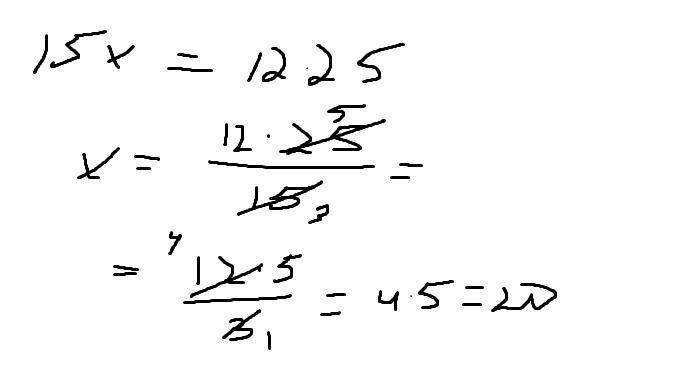 15x = 12·25
x = (12·25)/15 =
= (12·5)/3 = 4·5 = 20